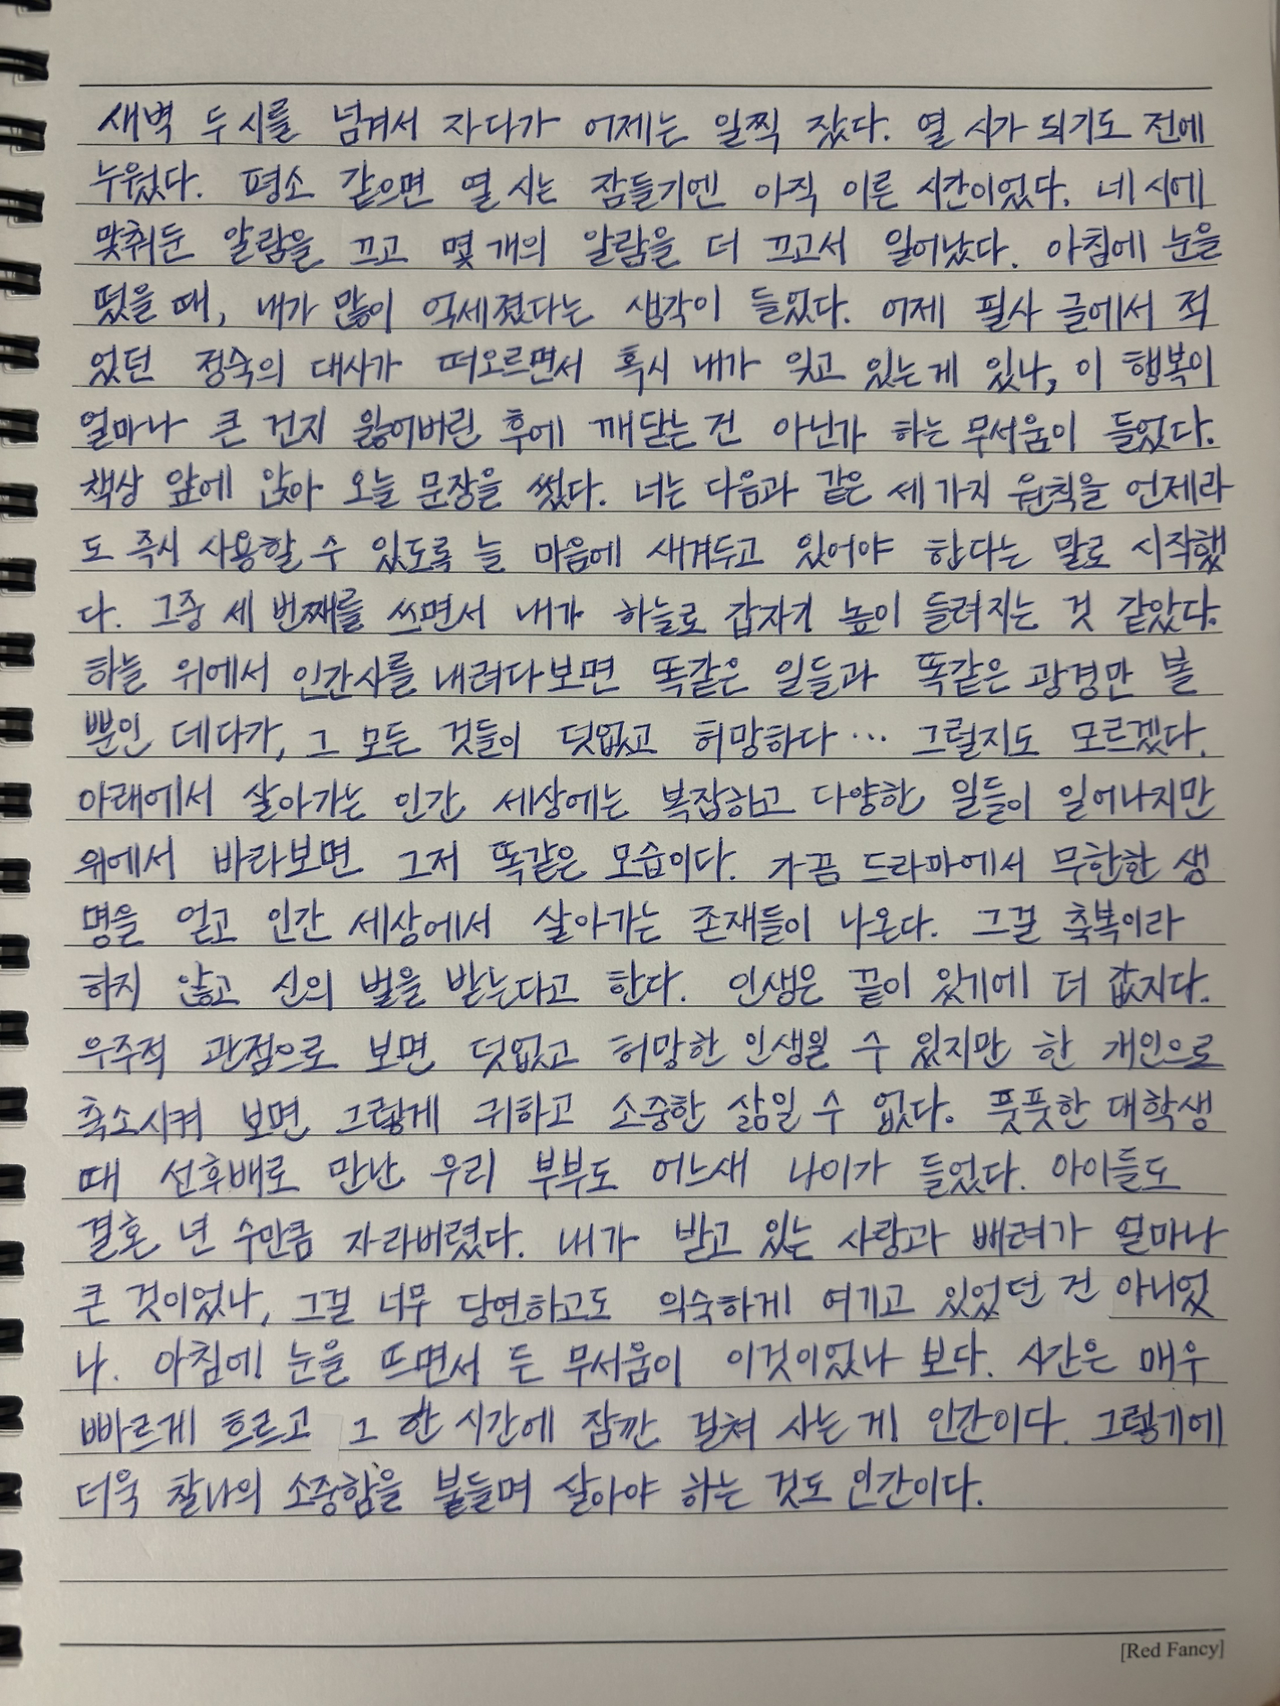 새벽 두 시를 넘겨서 자다가 어제는 일찍 잤다. 열 시가 되기도 전에
누웠다. 평소 같으면 열 시는 잠들기엔 아직 이른 시간이었다. 네 시에
맞춰둔 알람을 끄고 몇 개의 알람을 더 끄고서 일어났다. 아침에 눈을
떴을 때, 내가 많이 억세졌다는 생각이 들었다. 어제 필사 글에서 적
었던 정숙의 대사가 떠오르면서 혹시 내가 잊고 있는 게 있나, 이 행복이
얼마나 큰 건지 잃어버린 후에 깨닫는 건 아닌가 하는 무서움이 들었다.
책상 앞에 앉아 오늘 문장을 썼다. 너는 다음과 같은 세 가지 원칙을 언제라
도 즉시 사용할 수 있도록 늘 마음에 새겨두고 있어야 한다는 말로 시작했
다. 그중 세 번째를 쓰면서 내가 하늘로 갑자기 높이 들려지는 것 같았다.
하늘 위에서 인간사를 내려다보면 똑같은 일들과 똑같은 광경만 볼
뿐인 데다가, 그 모든 것들이 덧없고 허망하다… 그럴지도 모르겠다.
아래에서 살아가는 인간 세상에는 복잡하고 다양한 일들이 일어나지만
위에서 바라보면 그저 똑같은 모습이다. 가끔 드라마에서 무한한 생
명을 얻고 인간 세상에서 살아가는 존재들이 나온다. 그걸 축복이라
하지 않고 신의 벌을 받는다고 한다. 인생은 끝이 있기에 더 값지다.
우주적 관점으로 보면 덧없고 허망한 인생일 수 있지만 한 개인으로
축소시켜 보면 그렇게 귀하고 소중한 삶일 수 없다. 풋풋한 대학생
때 선후배로 만난 우리 부부도 어느새 나이가 들었다. 아이들도
결혼 년 수만큼 자라버렸다. 내가 받고 있는 사랑과 배려가 얼마나
큰 것이었나, 그걸 너무 당연하고도 익숙하게 여기고 있었던 건 아니었
나. 아침에 눈을 뜨면서 든 무서움이 이것이었나 보다. 시간은 매우
빠르게 흐르고 그 한 시간에 잠깐 걸쳐 사는 게 인간이다. 그렇기에
더욱 찰나의 소중함을 붙들며 살아야 하는 것도 인간이다.
[Red Fancy]